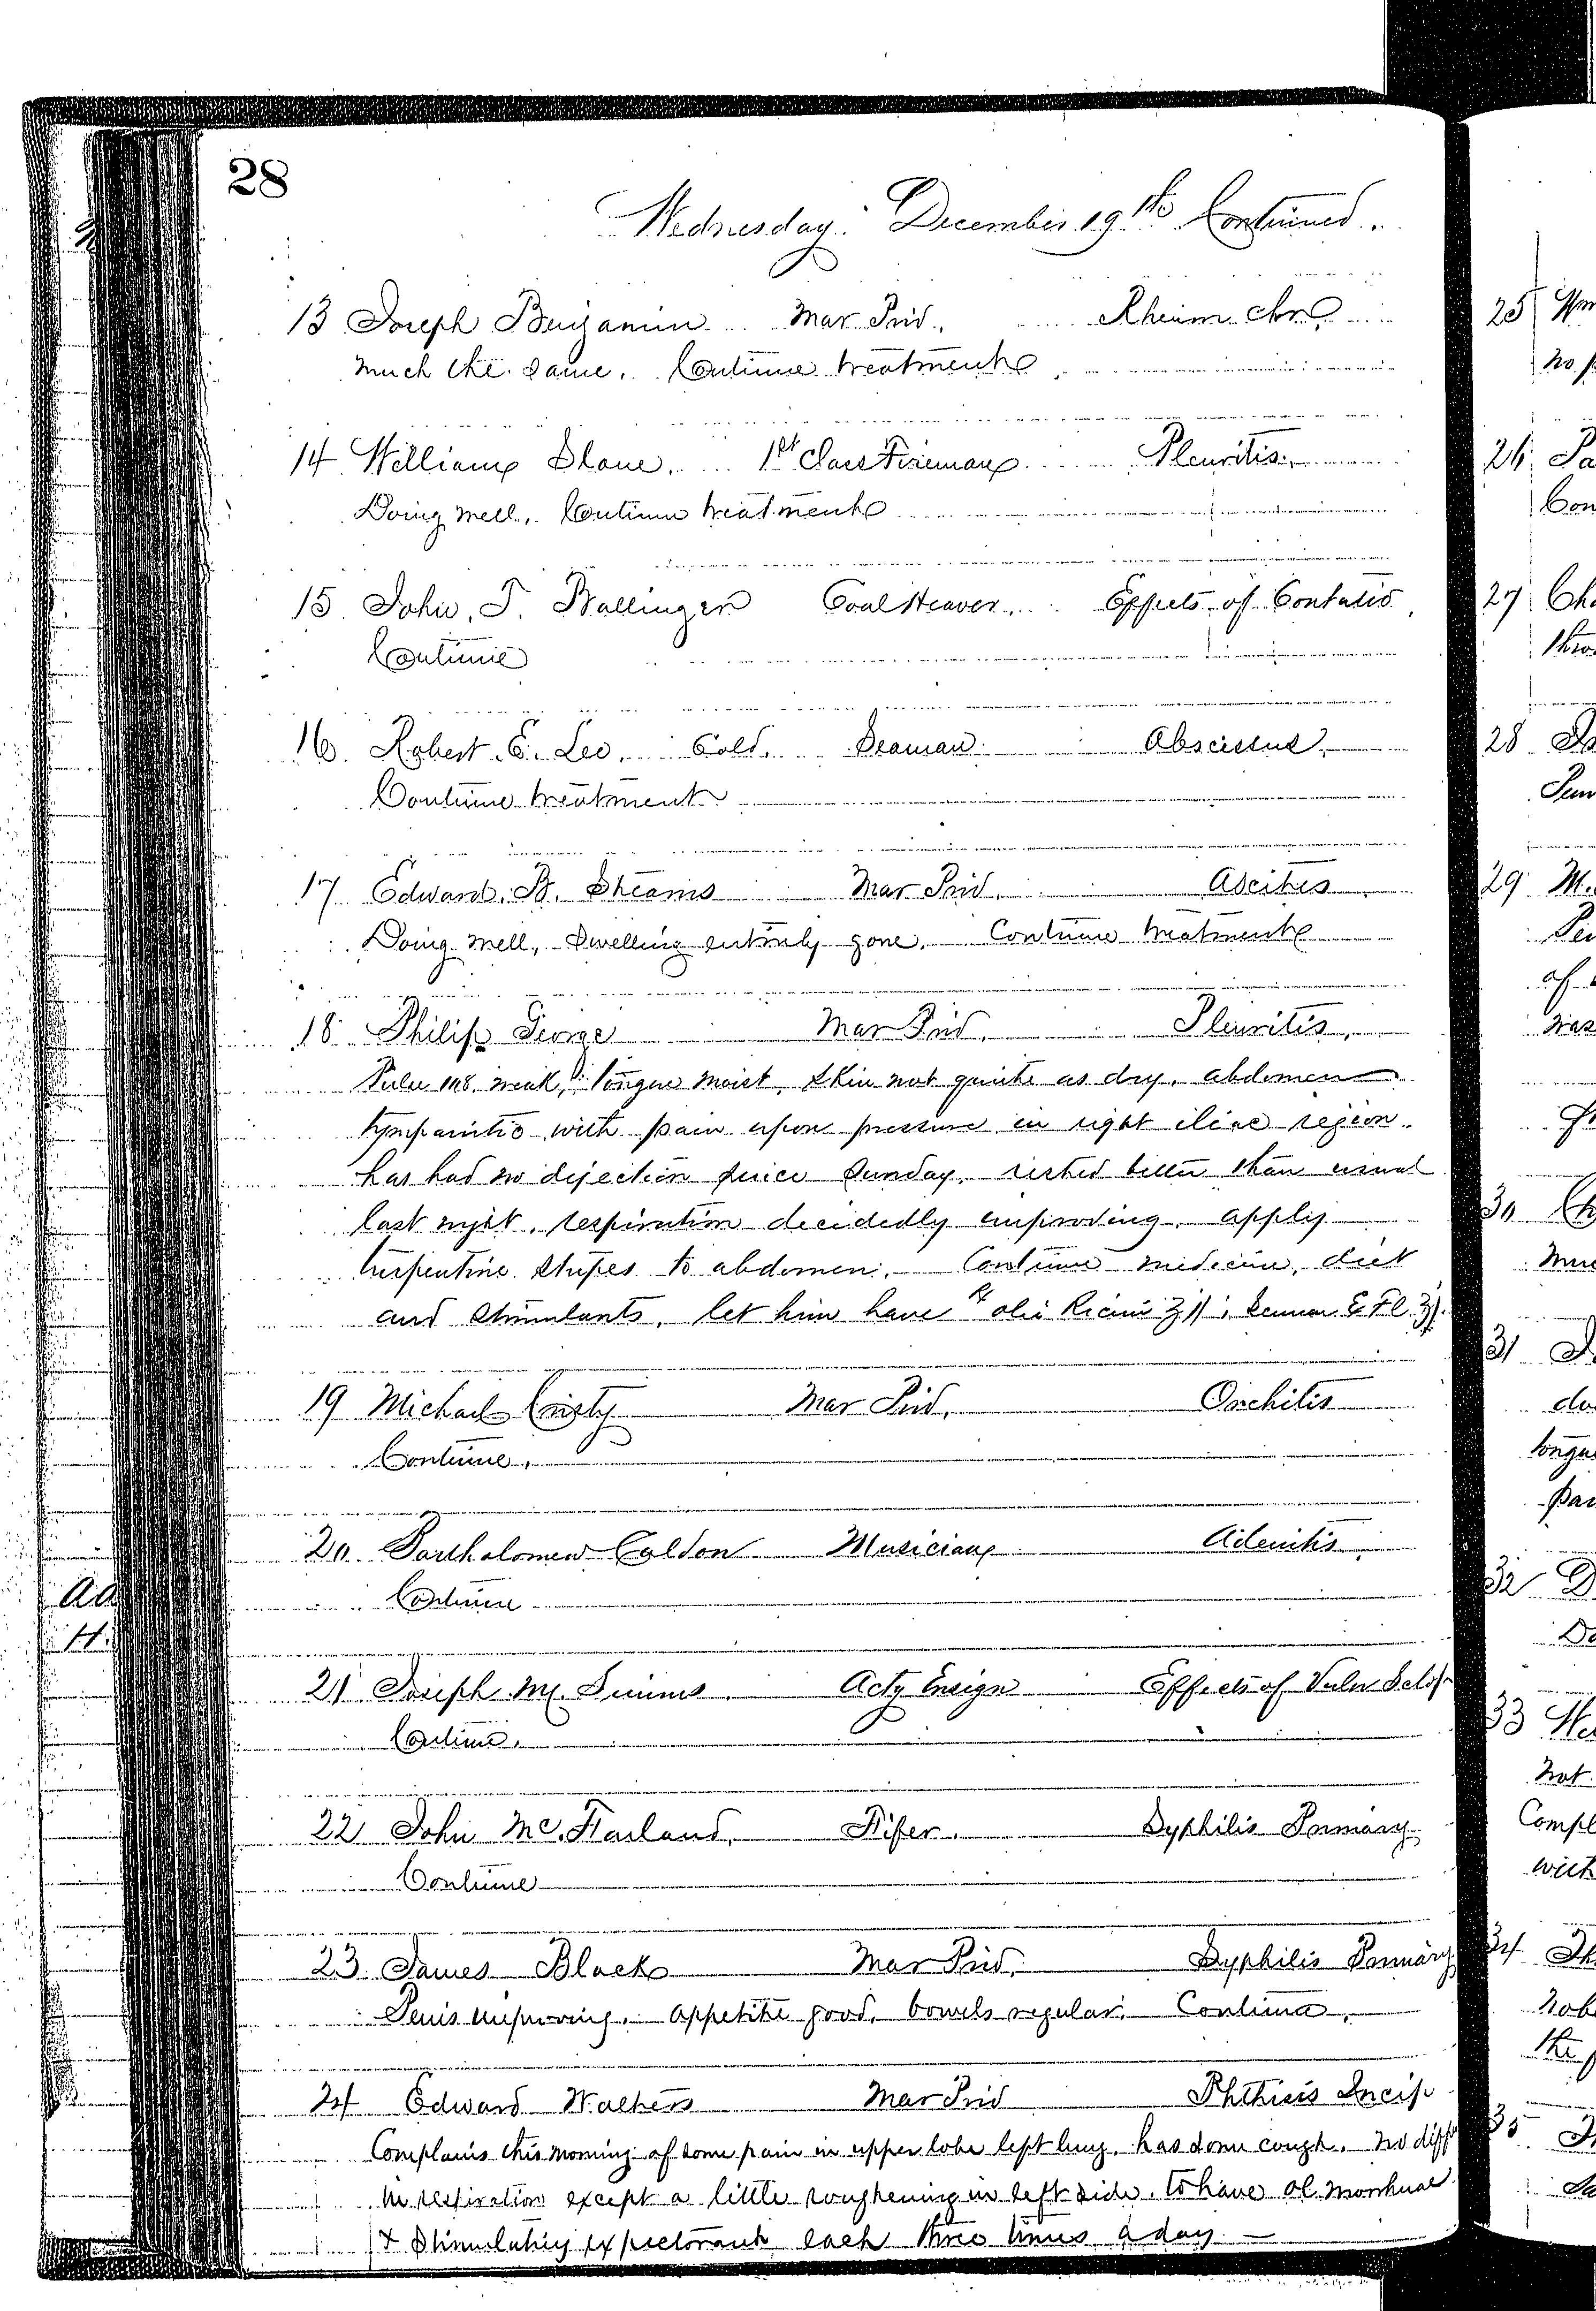 28
Wednesday. December 19th Continued.
13 Joseph Benjamin Mar Priv. Rheum. chr
much the same. Continue treatment
14 William Slane. 1st Class Fireman Pleuritis.
Doing well. Continue treatment
15 John. T. Ballinger Coal Heaver. Effects of Contusio
Continue
16 Robert. E. Lee. Cold. Seaman. Abscessus.
Continue treatment
17 Edward. B. Stearns Mar Priv. Ascites
Doing well, Swelling entirely gone. Continue treatment
18 Philip George Mar Priv. Pleuritis.
Pulse 118. weak, tongue moist, skin not quite as dry. abdomen
tympanitic with pain upon pressure in right iliac region.
has had no dejection since Sunday, rested better than usual
last night, respiration decidedly improving. apply
turpentine stupes to abdomen. Continue medicine, diet
and stimulants. let him have ℞ olei Ricini ℥ij, Sennae E Fl ℥j.
19 Michael Cristy Mar Priv. Orchitis
Continue.
20. Bartholomew Caldon Musician Adenitis.
Continue
21 Joseph. M. Simms. Actg Ensign Effects of Vuln Sclop
Continue.
22 John Mc. Farland. Fifer. Syphilis Primary
Continue
23. James Black Mar Priv. Syphilis Primary
Penis improving. appetite good. bowels regular. Continue.
24 Edward Walters Mar Priv Phthisis Incip
Complains this morning of some pain in upper lobe left lung. has some cough. no diff
in respiration except a little roughening in left side. to have ol. Morrhuae
& Stimulating expectorant each three times a day.
25 Wm
no p
26
Con
27 Cha
thro
28
29 M.
of
was
30 Ch
31
tongue
32 D
33 He
not
Compl
with
34 Th
the
35